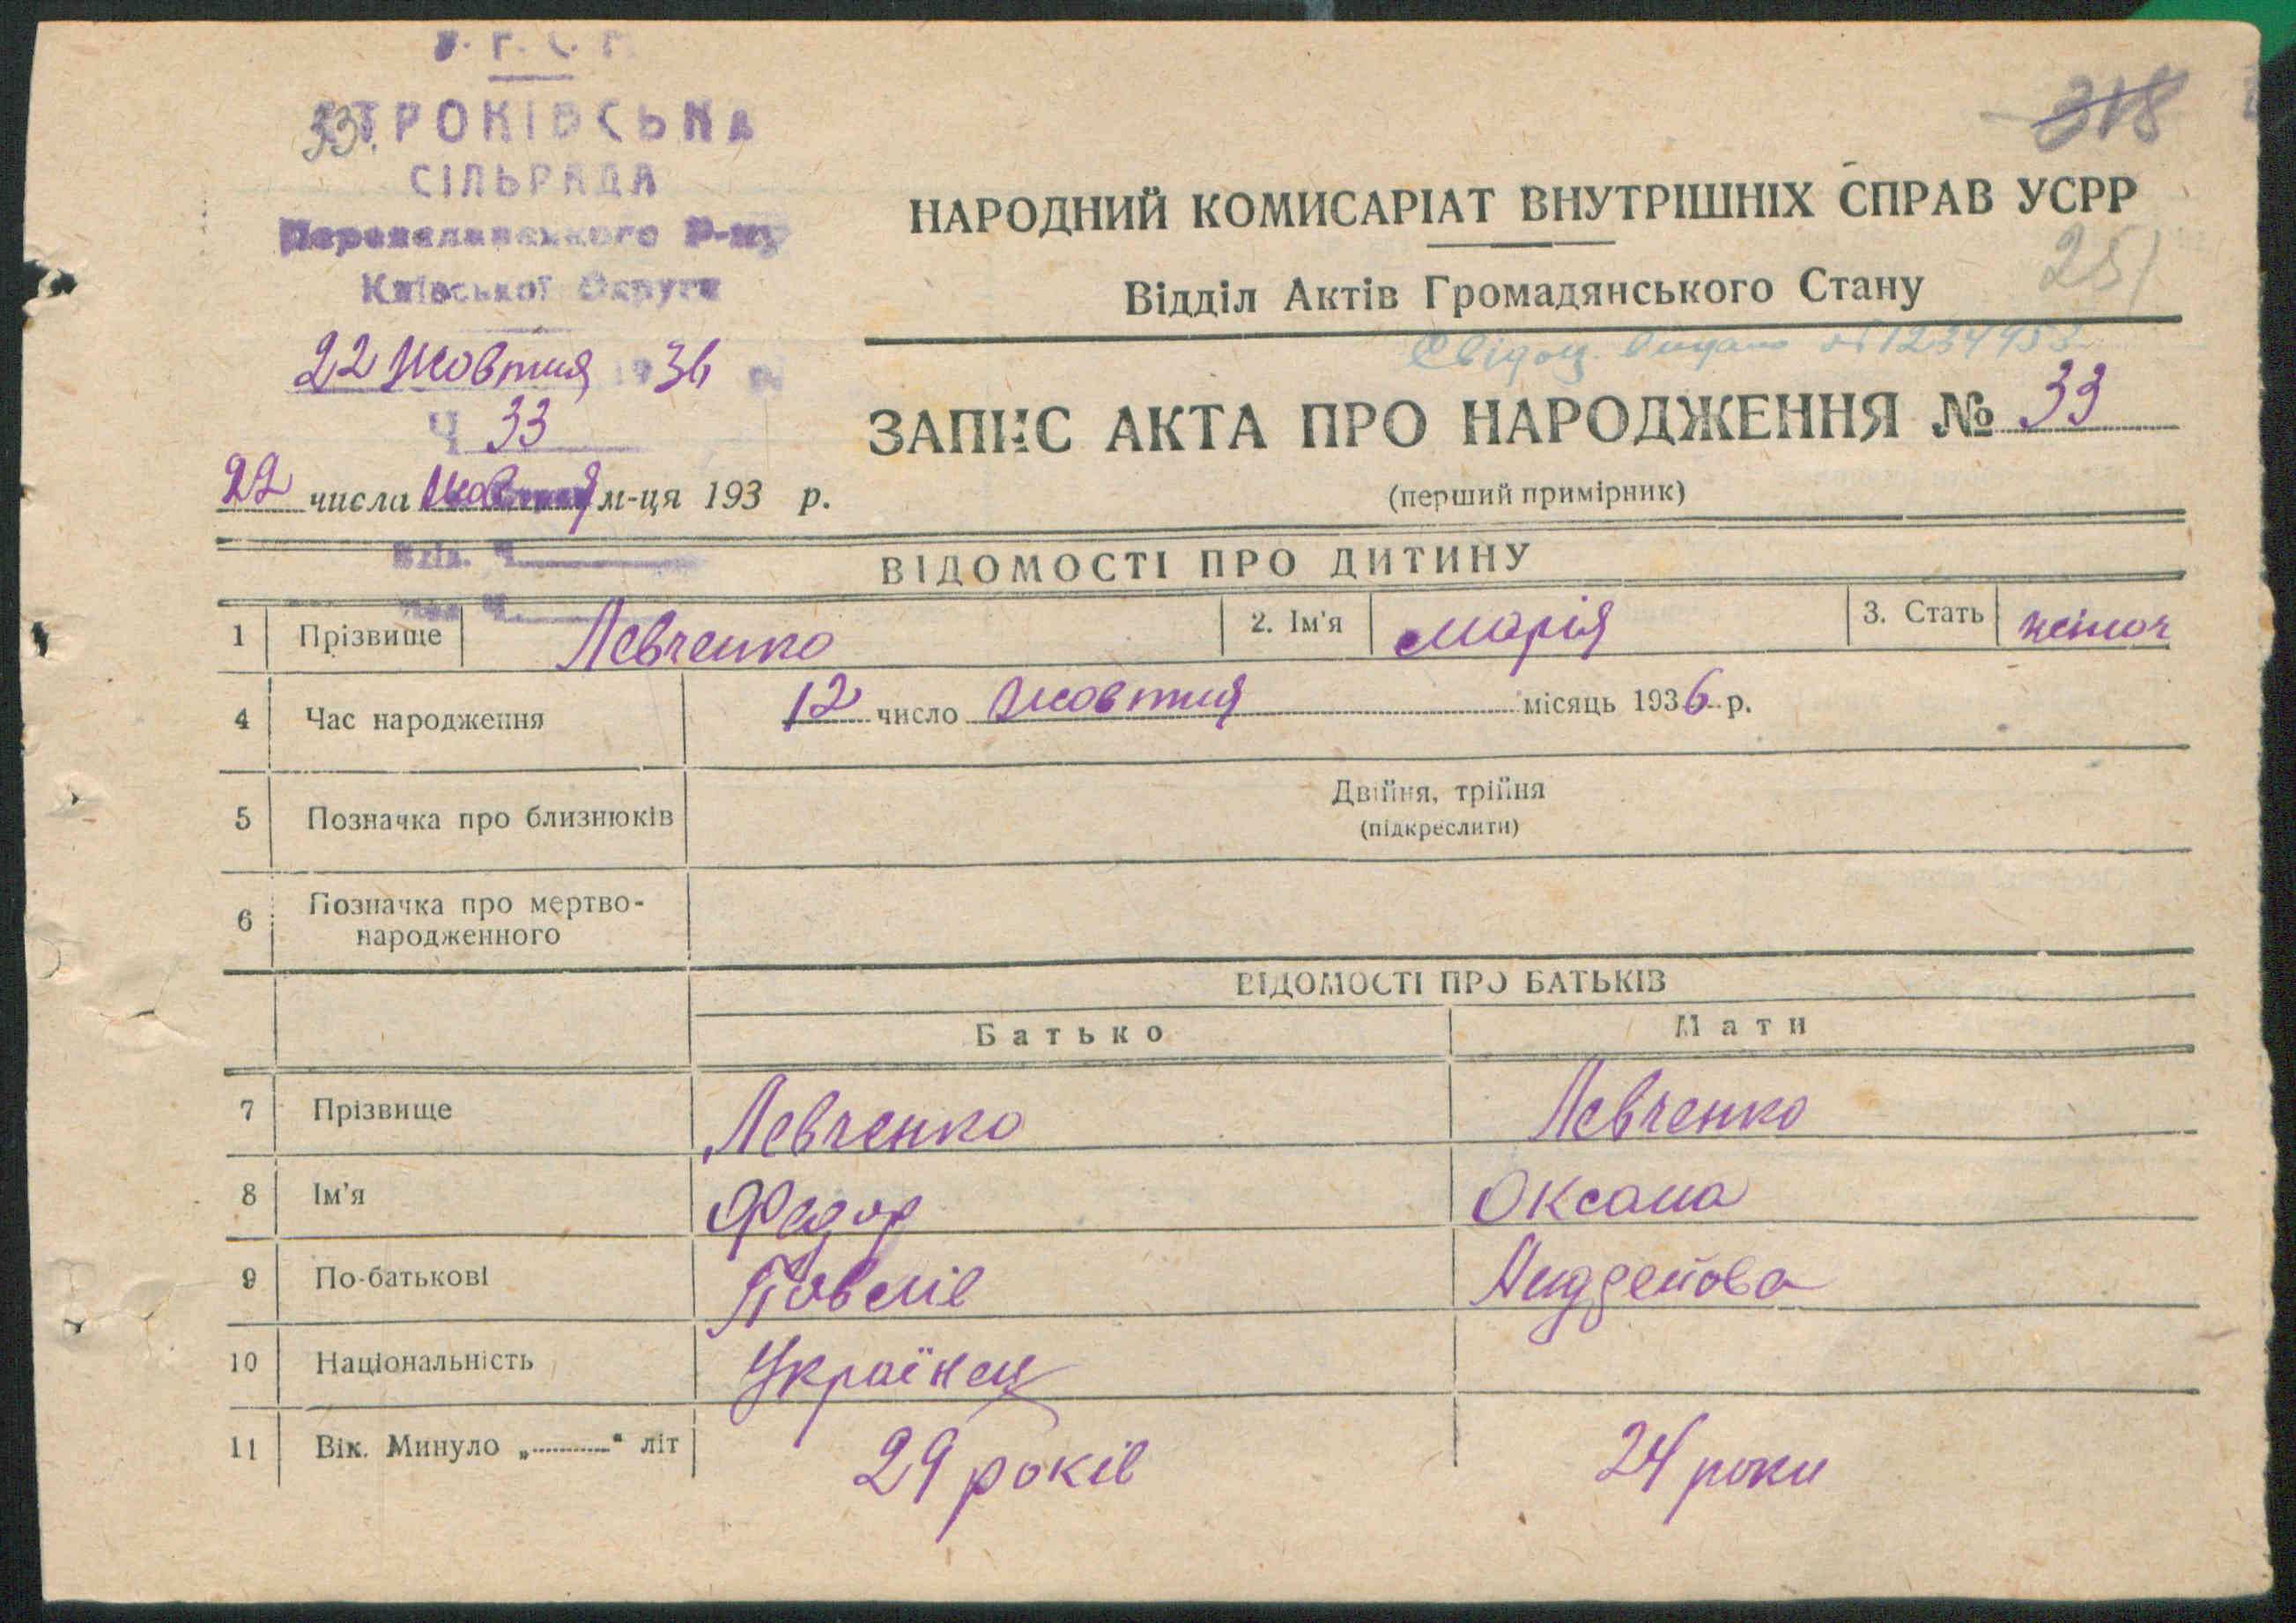 У. Г. С. Р.
СТРОКІВСЬКА
33.
СІЛЬРАДА
Р-ну
Київської Округи
22 Жовтня 1936 р.
Ч 33
22 числа Жовтня м-ця 193 р.
Вхід. Ч.
318
НАРОДНИЙ КОМИСАРІАТ ВНУТРІШНІХ СПРАВ УСРР
251
Відділ Актів Громадянського Стану
Свідоц. видано № 1234953
ЗАПИС АКТА ПРО НАРОДЖЕННЯ № 33
(перший примірник)
ВІДОМОСТІ ПРО ДИТИНУ
1 Прізвище Левченко 2. Ім'я Марія 3. Стать жіноч
4 Час народження 12 число Жовтня місяць 1936 р.
5 Позначка про близнюків Двійня, трійня
(підкреслити)
6 Позначка про мертво-
народженного
ВІДОМОСТІ ПРО БАТЬКІВ
Батько Мати
7 Прізвище Левченко Левченко
8 Ім'я Федор Оксана
9 По-батькові Павлів
10 Національність Українец
11 Вік. Минуло „ “ літ 29 років 24 роки